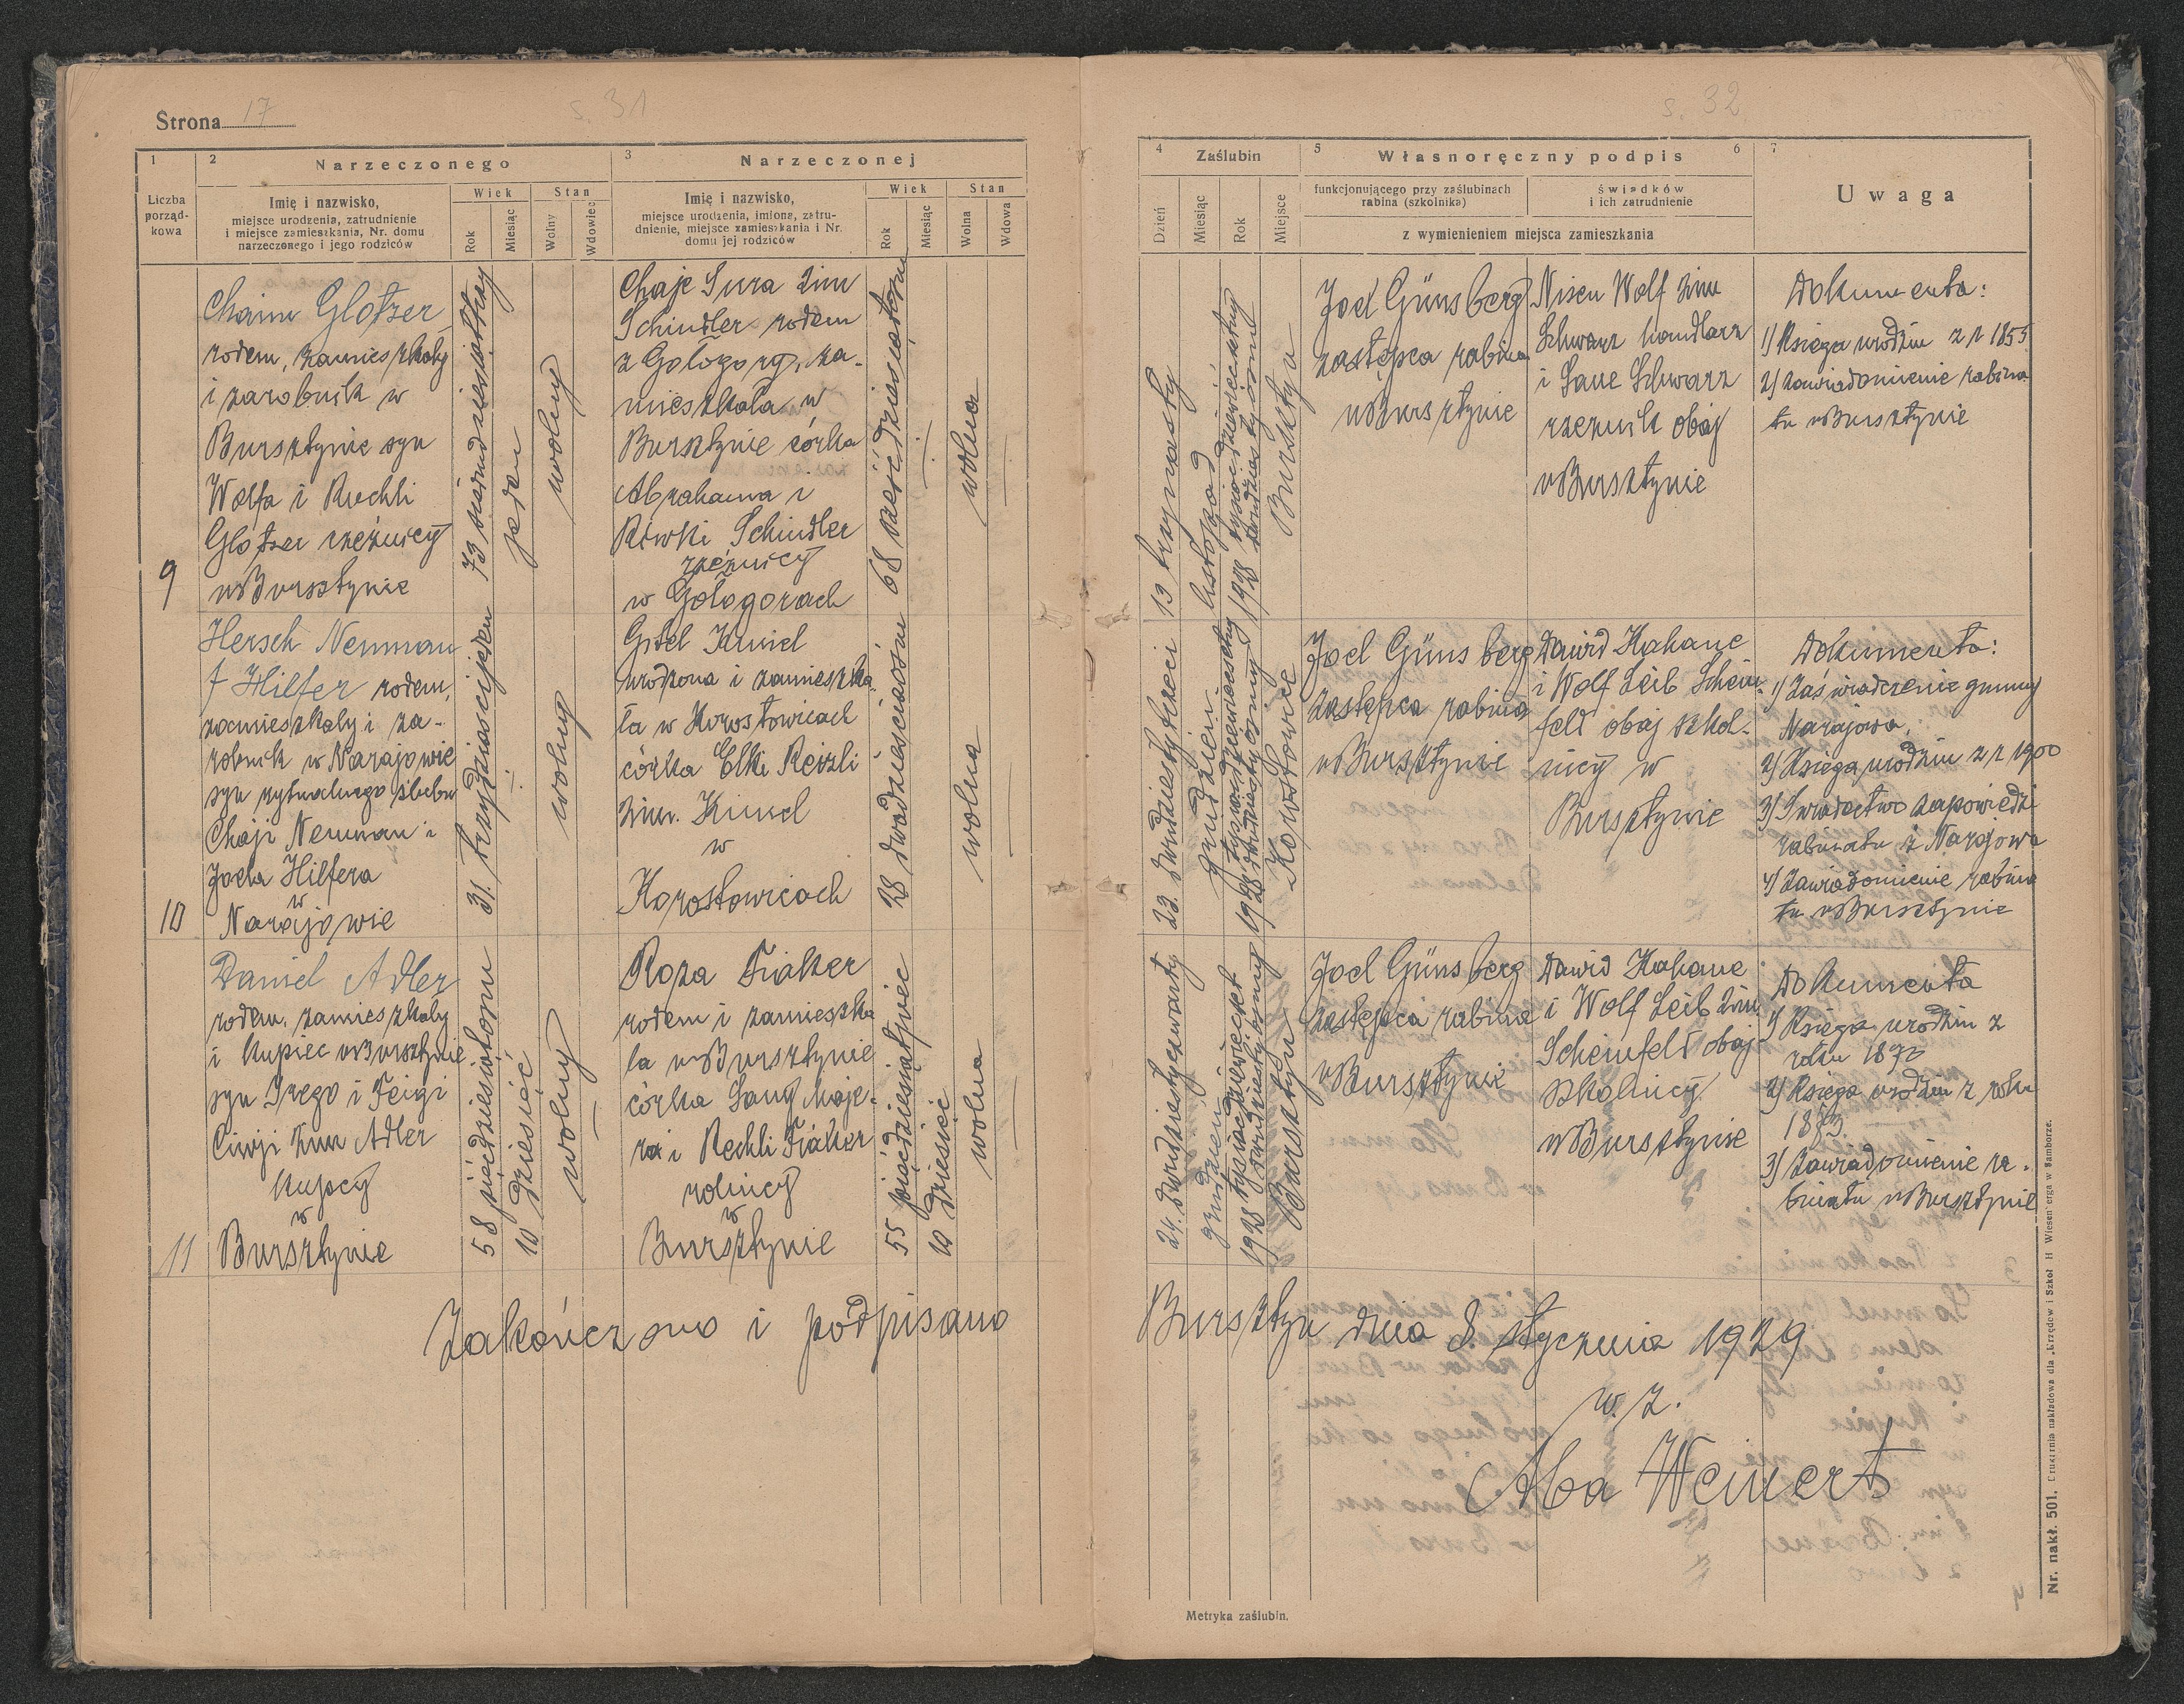 Strona 17
s. 31
1
2
Narzeczonego
3
Narzeczonej
Liczba
porząd-
kowa
Imię i nazwisko,
miejsce urodzenia, zatrudnienie
i miejsce zamieszkania, Nr. domu
narzeczonego i jego rodziców
Wiek
Rok
Miesiąc
Stan
Wolny
Wdowiec
Imię i nazwisko,
miejsce urodzenia, imiona, zatru-
dnienie, miejsce zamieszkania i Nr.
domu jej rodziców
Wiek
Rok
Miesiąc
Stan
Wolna
Wdowa
9
Chaim Glotzer
rodem, zamieszkały
i zarobnik w
Bursztynie syn
Wolfa i Ruchli
Glotzer rzeźnicy
w Bursztynie
73 siedmdziesiąttrzy
jeden
wolny
Chaje Sura 2im
Schindler rodem
z Gołogory, za-
mieszkała w
Bursztynie córka
Abrahama i
Riwki Schindler
rzeźnicy
w Gołogorach
68 sześćdziesiątośm
wolna
10
Hersch Neuman
f Hilfer rodem,
zamieszkały i za-
robnik w Narajowie
syn rytualnego ślubu
Chaji Neuman i
Joela Hilfera
w
Narajowie
31. trzydzieścijeden
wolny
Gitel Kimel
urodzona i zamieszka-
ła w Korostowicach
córka Elki Reizli
2im. Kimel
w
Korostowicach
28 dwadzieściaośm
wolna
11
Daniel Adler
rodem, zamieszkały
i kupiec w Bursztynie
syn Srego i Feigi
Ciwji 2im Adler
kupcy
w
Bursztynie
58 pięćdziesiątośm
10 dziesięć
wolny
Roza Fiakier
rodem i zamieszka
ła w Bursztynie
córka Sany Maje-
ra i Rechli Fiaker
rolnicy
w
Bursztynie
55 pięćdziesiątpięć
10 dziesięć
wolna
Zakończono i podpisano
s. 32
4
Zaślubin
5
Własnoręczny podpis
6
7
Dzień
Miesiąc
Rok
Miejsce
funkcjonującego przy zaślubinach
rabina (szkolnika)
świadków
i ich zatrudnienie
z wymienieniem miejsca zamieszkania
Uwaga
13 trzynasty
listopad
1928 tysiącdziewięćset
dwudziestyósmy
Bursztyn
Joel Günsberg
zastępca rabina
w Bursztynie
Nisen Wolf 2im
Schwarz handlarz
i Sane Schwarz
rzeźnik obaj
w Bursztynie
Dokumenta:
1) Księga urodzin z r 1855
2) Zawiadomienie rabina-
tu w Bursztynie
23. dwudziestytrzeci
grudzień
1928 dwudziestyósmy
Korostowice
Joel Günsberg
zastępca rabina
w Bursztynie
Dawid Kahane
i Wolf Leib Schein-
feld obaj szkol-
nicy w
Bursztynie
Dokumenta:
1) Zaświadczenie gminy
Narajowa.
2) Księga urodzin z r 1900
3) Świadectwo zapowiedzi
rabinatu z Narajowa
4) Zawiadomienie rabina
tu w Bursztynie
24. dwudziestyczwarty
grudzień
1928 tysiącdziewięćset
dwudziestyósmy
Bursztyn
Joel Günsberg
zastępca rabina
w Bursztynie
Dawid Kahane
i Wolf Leib 2im
Scheinfeld obaj
szkolnicy
w Bursztynie
Dokumenta
1) Księga urodzin z
roku 1870
2) Księga urodzin z roku
1873.
3) Zawiadomienie ra-
binatu w Bursztynie
Bursztyn dnia 8. stycznia 1929
w. z.
Aba Weinert
Metryka zaślubin.
Nr. nakł. 501. Drukarnia nakładowa dla Urzędów i Szkół H Wiesenberga w Samborze.